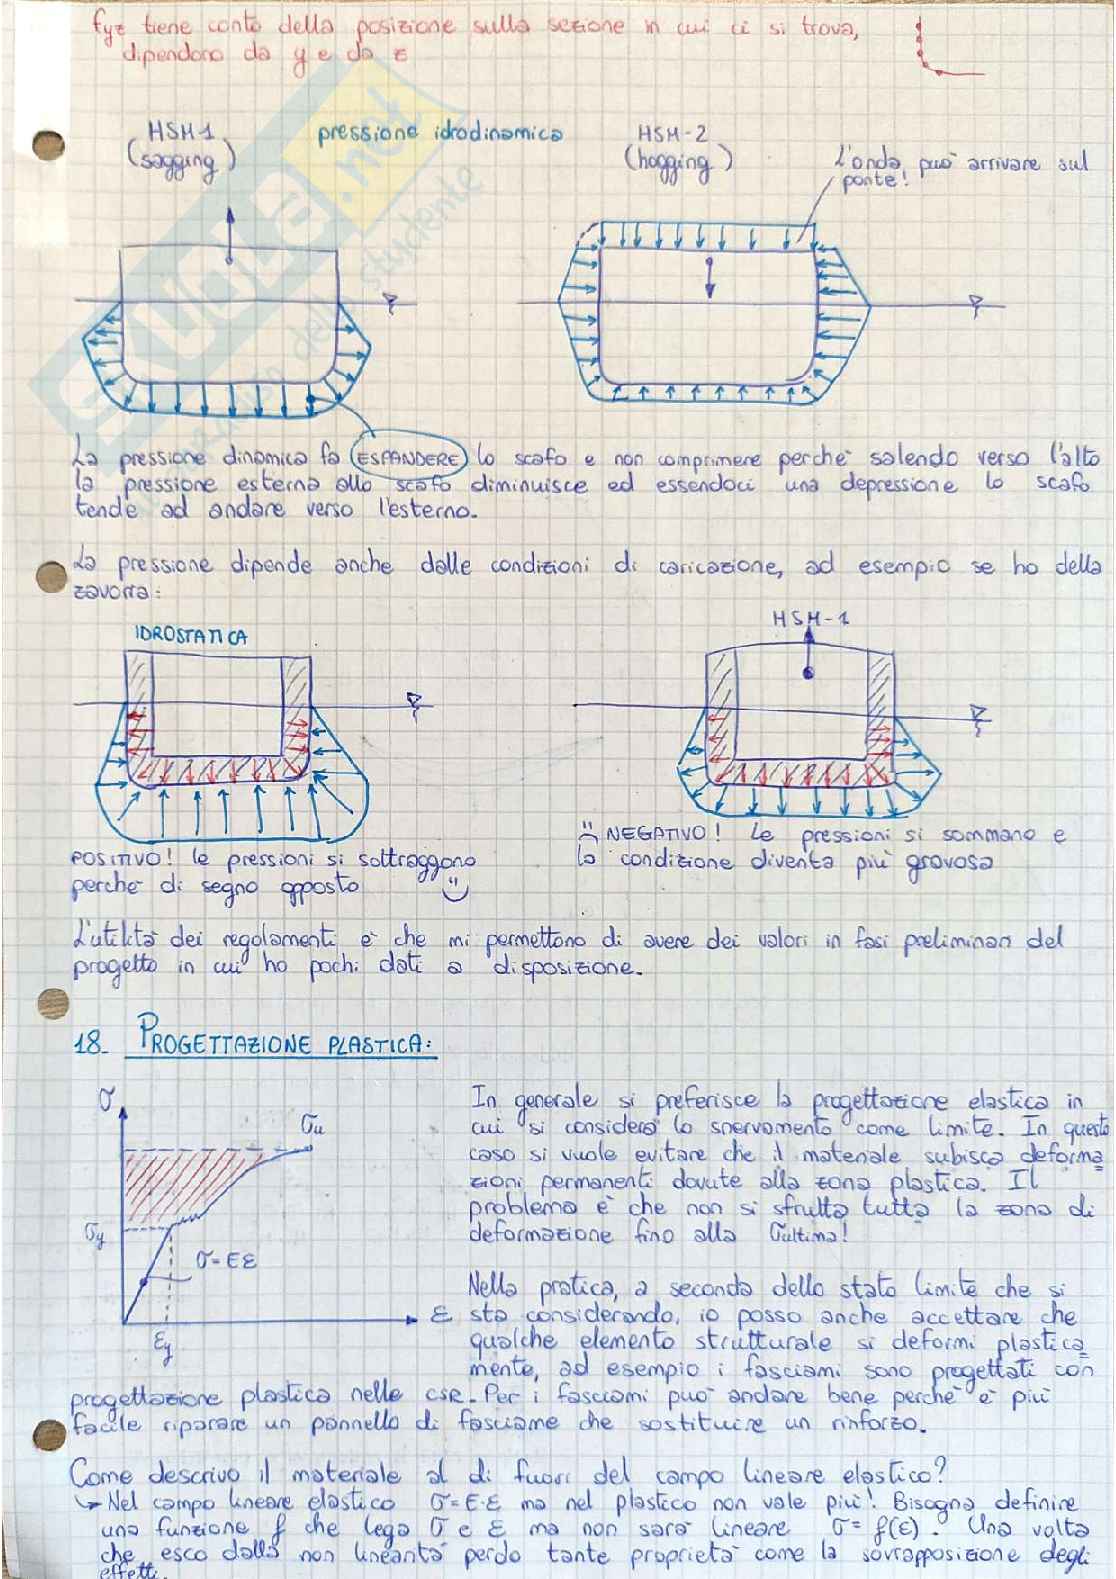 fyz tiene conto della posizione sulla sezione in cui ci si trova,
dipendono da y e da z
HSM-1
(sagging)
pressione idrodinamica
HSM-2
(hogging)
L'onda può arrivare sul
ponte!
SKUOLA.net
La pressione dinamica fa ESPANDERE lo scafo e non comprimere perché salendo verso l'alto
la pressione esterna allo scafo diminuisce ed essendoci una depressione lo scafo
tende ad andare verso l'esterno.
La pressione dipende anche dalle condizioni di caricazione, ad esempio se ho della
zavorra:
IDROSTATICA
HSM-1
POSITIVO! le pressioni si sottraggono
perché di segno opposto
NEGATIVO! Le pressioni si sommano e
la condizione diventa più gravosa
L'utilità dei regolamenti è che mi permettono di avere dei valori in fasi preliminari del
progetto in cui ho pochi dati a disposizione.
18. PROGETTAZIONE PLASTICA:
σ
σu
σy
σ=Eε
ε
εy
In generale si preferisce la progettazione elastica in
cui si considera lo snervamento come limite. In questo
caso si vuole evitare che il materiale subisca deforma
zioni permanenti dovute alla zona plastica. Il
problema è che non si sfrutta tutta la zona di
deformazione fino alla σultima!
Nella pratica, a seconda dello stato limite che si
sta considerando, io posso anche accettare che
qualche elemento strutturale si deformi plastica
mente, ad esempio i fasciami sono progettati con
progettazione plastica nelle CSR. Per i fasciami può andare bene perché è più
facile riparare un pannello di fasciame che sostituire un rinforzo.
Come descrivo il materiale al di fuori del campo lineare elastico?
↳ Nel campo lineare elastico σ=E·ε ma nel plastico non vale più! Bisogna definire
una funzione f che lega σ e ε ma non sarà lineare σ=f(ε). Una volta
che esco dalla non linearità perdo tante proprietà come la sovrapposizione degli
effetti.